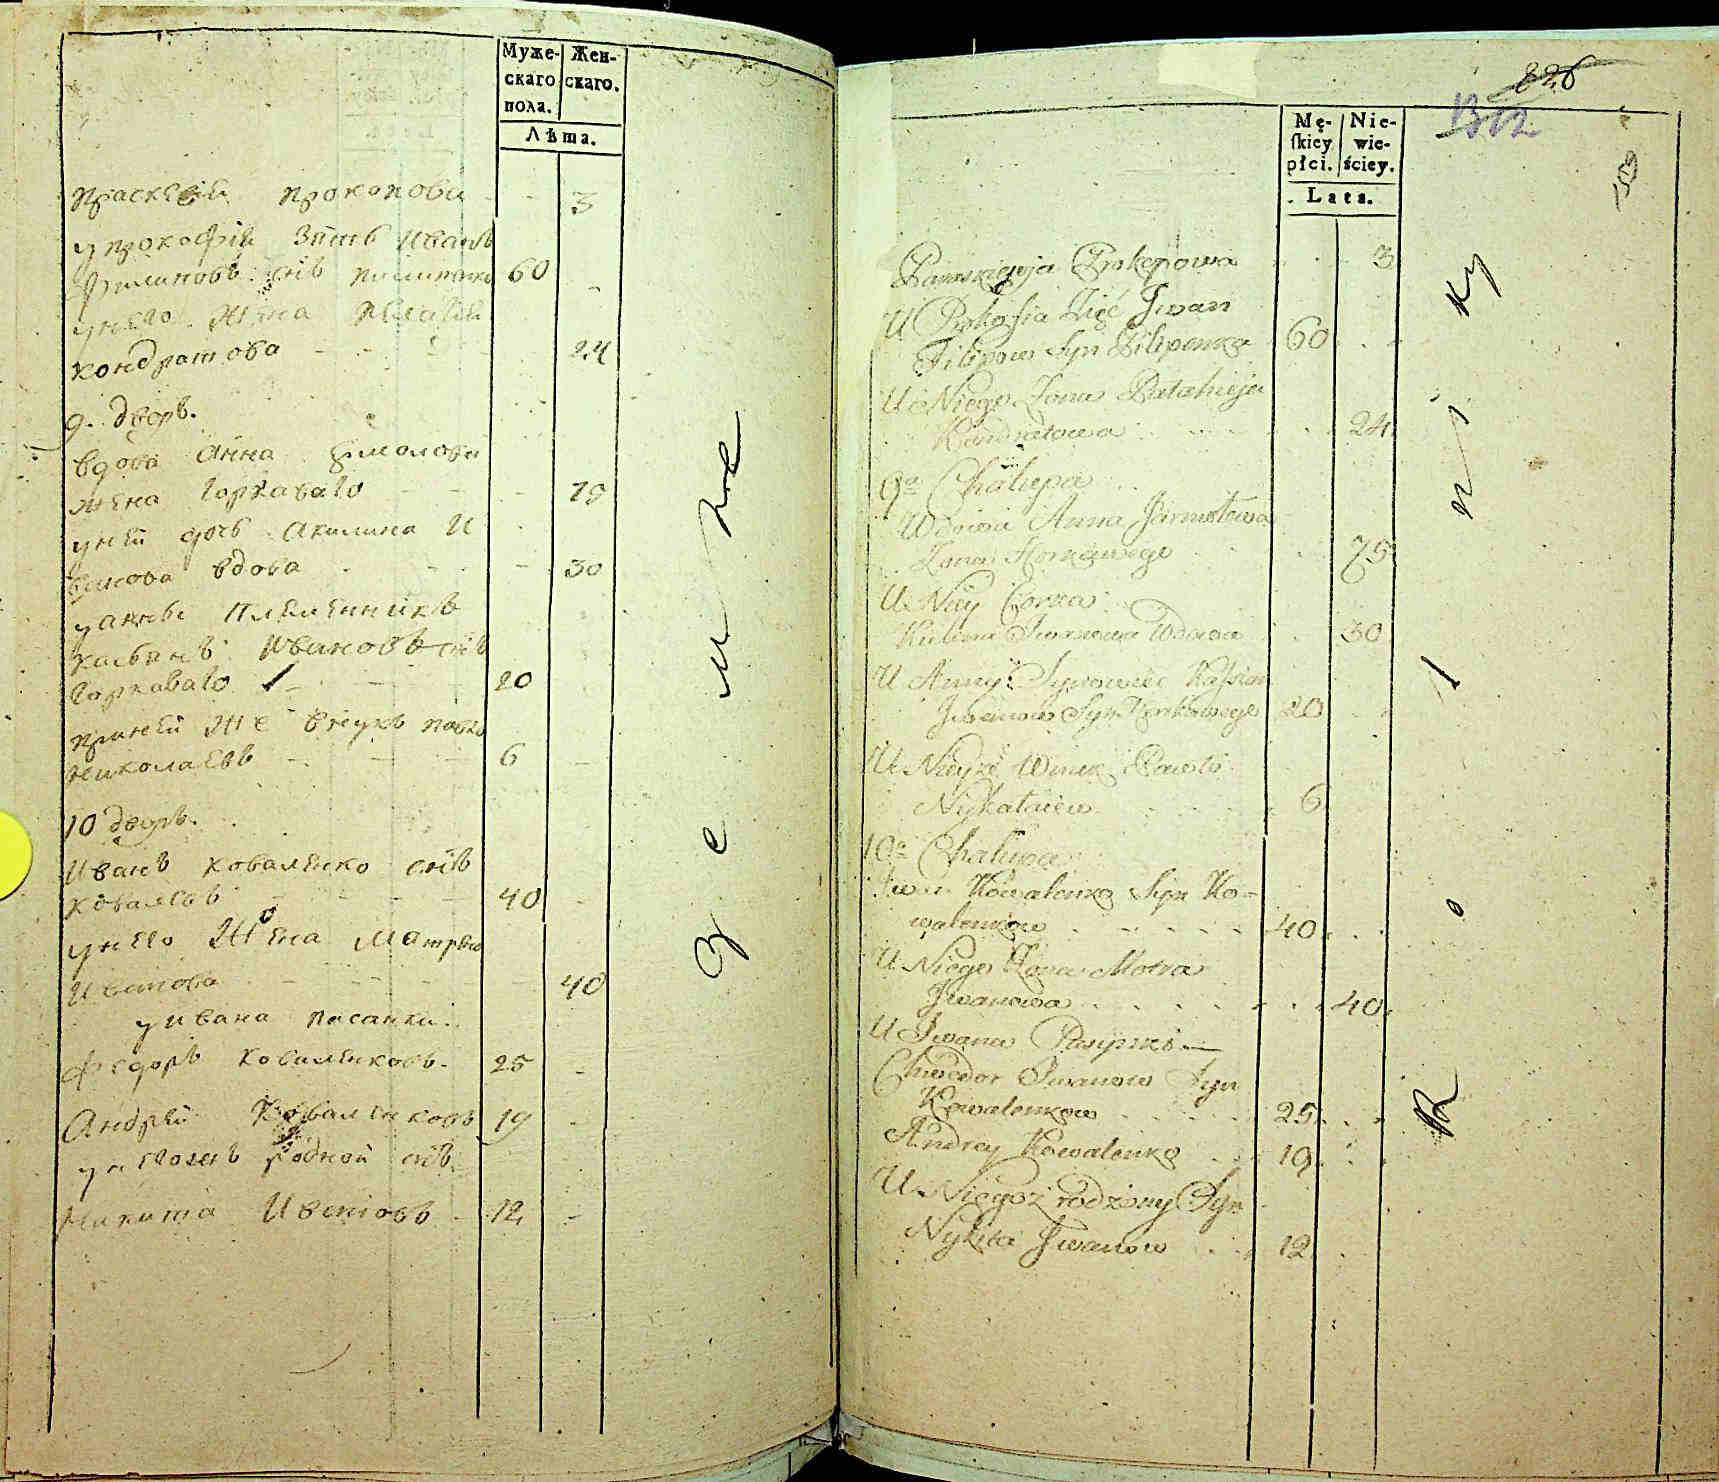 Муже- Жен-
скаго скаго.
пола.
Лѣта.
Праскевия Прокопова 3
у Прокофія Зять Иванъ
Филиповъ снъ Пилипенко 60
у него Жена Палагия
Кондратова 24
9. дворъ.
вдова Анна Ермолова
жена Горкаваго 75
у ней дочь Акилина И
ванова вдова 30
у Анны племенникъ
Касьянъ Ивановъ снъ
Горкаваго 20
при ней же внукъ Павло
Николаевъ 6
10 дворъ.
Иванъ Коваленко снъ
Ковалевъ 40
у него Жена Матрена
Иванова 40
у Ивана пасинки.
Федоръ Коваленковъ. 25
Андрей Коваленковъ 19
у него жъ родной снъ
Никита Ивановъ 12
Мę- Nie-
skiey wie-
płci. ściey.
Lata.
826
Paraskiewja Prokopowa 3
U Prokofia Zięć Jwan
Filipow Syn Pilipenko 60
U Niego Żona Pałahieja
Kondratowa 24
9a Chałupa
Wdowa Anna Jarmołowa
Żona Horkawego 75
U Niey Corka
Kulina Jwanowa Wdowa 30
U Anny Synowiec Kaſsian
Jwanow Syn Horkawego 20
U Nieyże Wnuk Pawło
Nykałaiew 6
10a Chałupa
Jwan Kowalenko Syn Ko-
walenkow 40
U Niego Żona Motra
Jwanowa 40
U Jwana Pasynki
Chwedor Jwanow Syn
Kowalenkow 25
Andrey Kowalenko 19
U Niegoż rodzony Syn
Nykita Jwanow 12